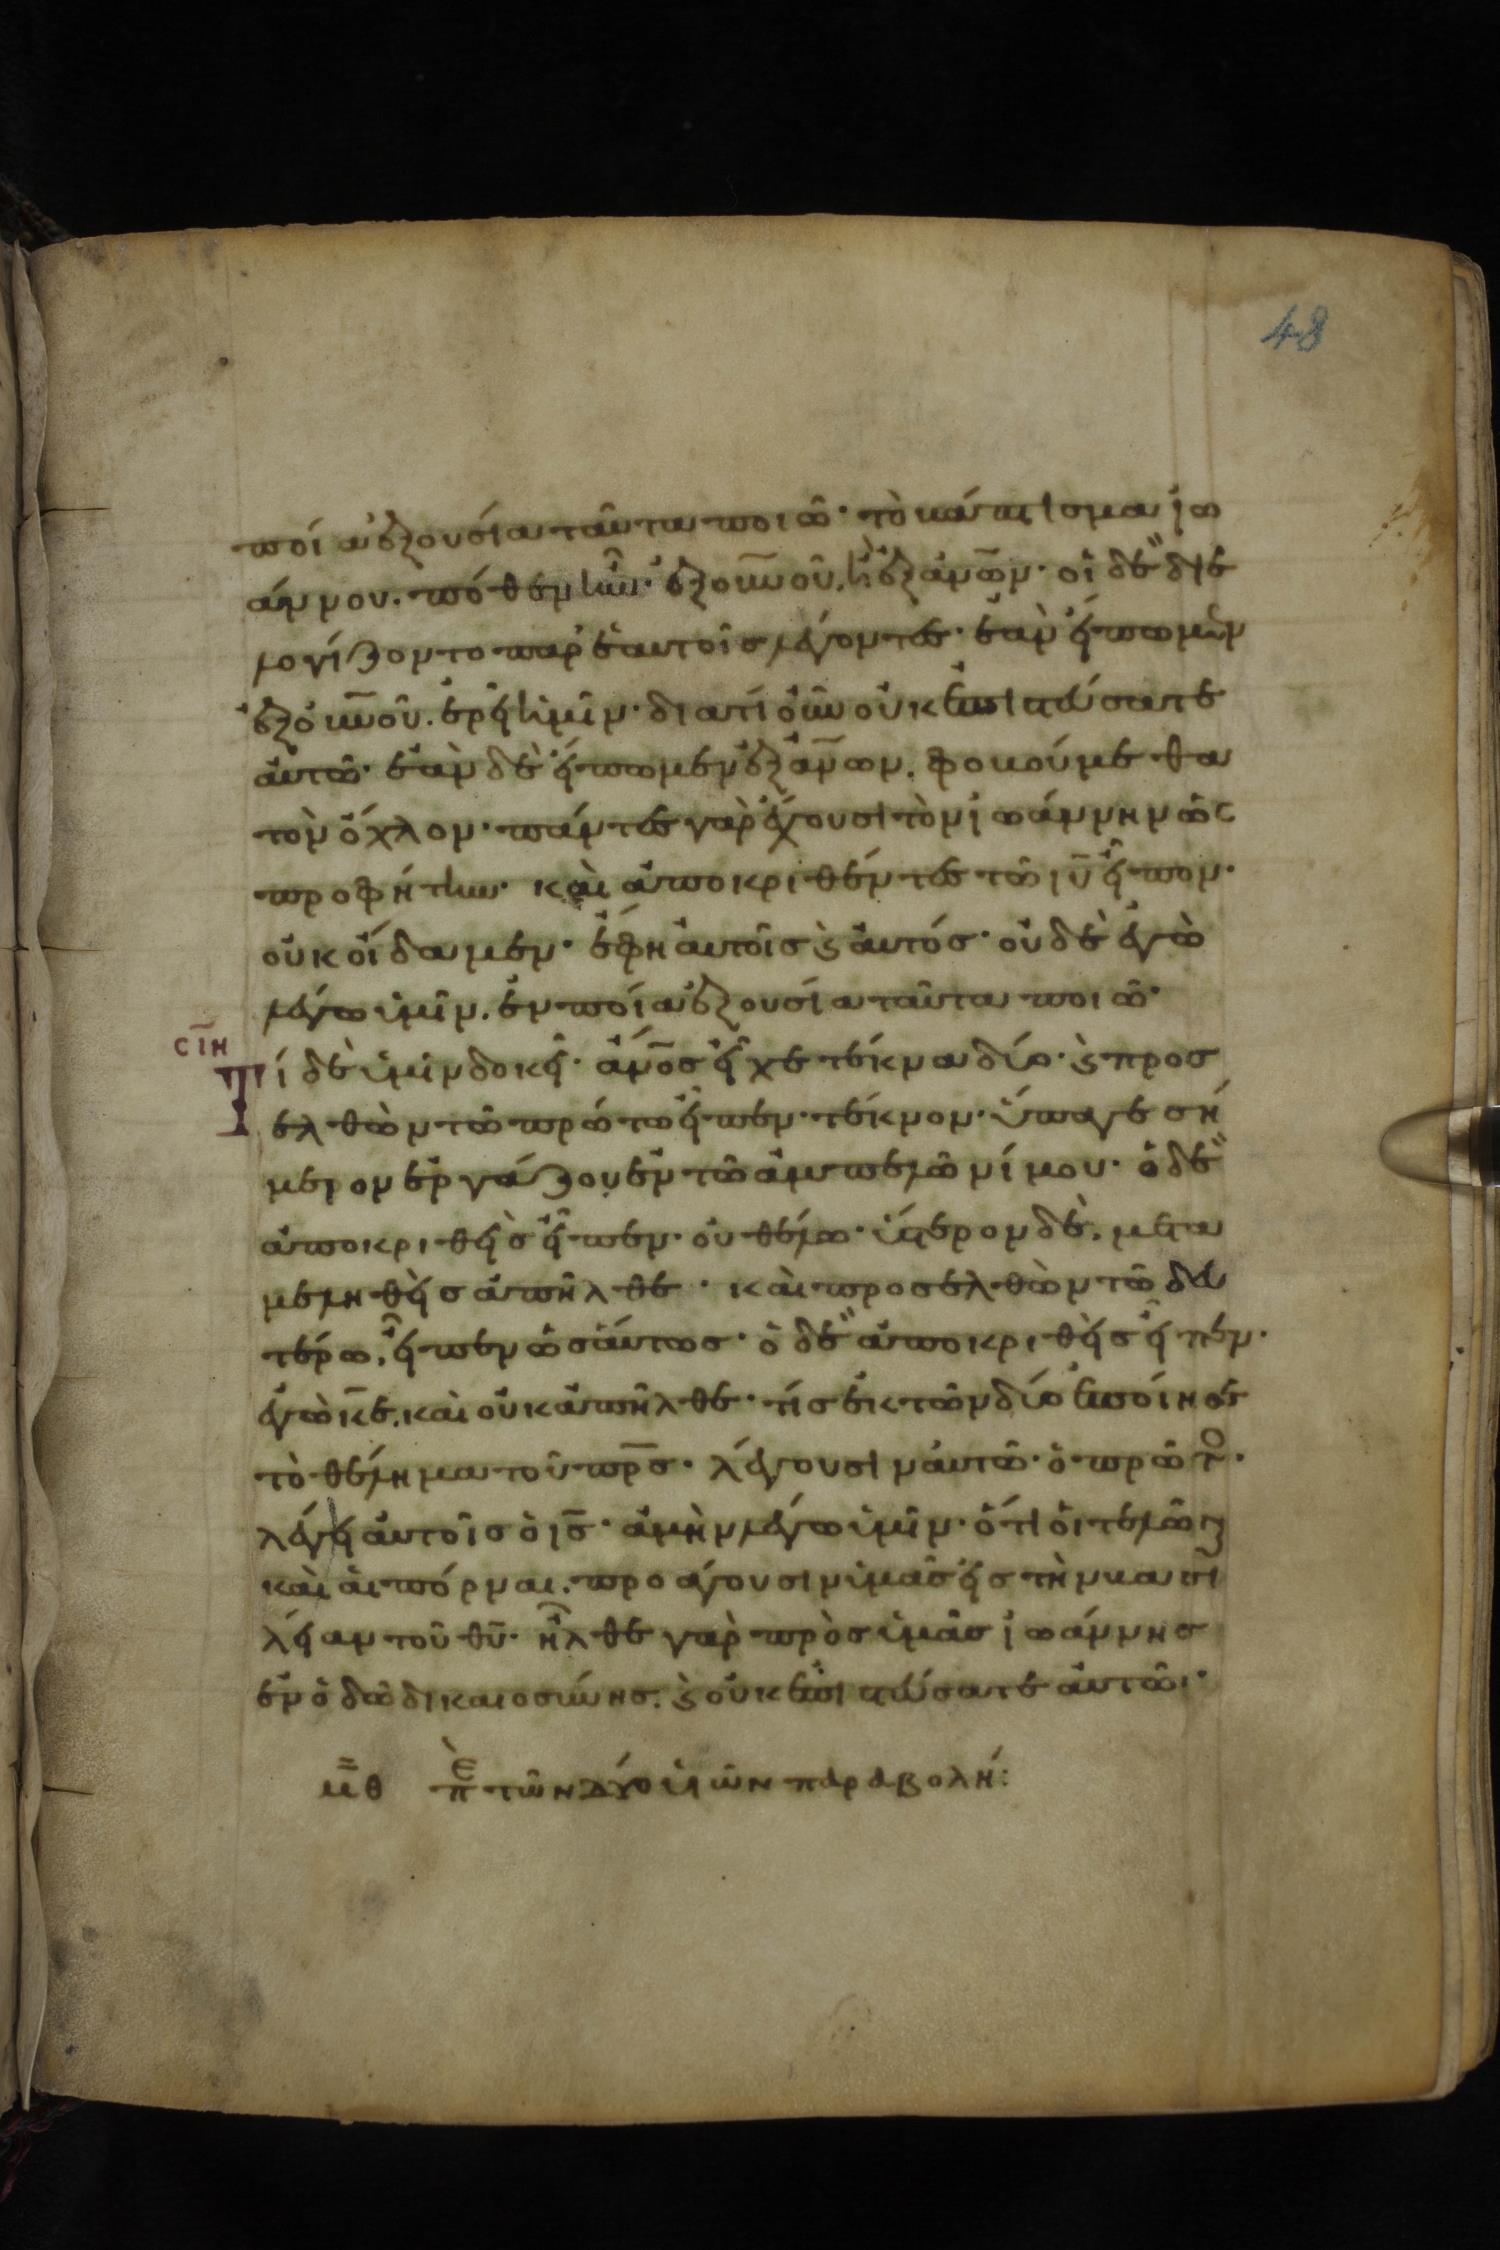 48
ποία ἐξουσία ταῦτα ποιῶ· τὸ βάπτισμα ἰω
άννου. πόθεν ἦν· ἐξ οὐ̅νοῦ, ἢ ἐξ ἀν̅ων· οἱ δὲ διε
λογίζοντο παρ' ἑαυτοῖς λέγοντες· ἐὰν εἴπωμεν
ἐξ οὐ̅νοῦ. ἐρεῖ ἡμῖν· διατί οὖν οὐκ ἐπιστεύσατε
αὐτῶ· ἐὰν δὲ εἴπωμεν ἐξ ἀν̅ων. φοβούμεθα
τὸν ὄχλον· πάντες γὰρ ἔχουσι τὸν ἰωάννην ὡς
προφήτην· καὶ ἀποκριθέντες τῶ ιυ̅ εἶπον·
οὐκ οἴδαμεν· ἔφη αὐτοῖς ϗ αὐτός· οὐδὲ ἐγὼ
λέγω ὑμῖν. ἐν ποία ἐξουσία ταῦτα ποιῶ·
σι̅η
Τί δὲ ὑμῖν δοκεῖ· ἀν̅ος εἶχε τέκνα δύο· ϗ προσ
ελθὼν τῶ πρώτω εἶπεν· τέκνον· ὕπαγε σή
μερον ἐργάζου ἐν τῶ ἀμπελῶνί μου· ὁ δὲ
ἀποκριθεὶς εἶπεν· οὐ θέλω· ὕστερον δὲ, μετα
μεληθεὶς ἀπῆλθε· καὶ προσελθὼν τῶ δευ
τέρω, εἶπεν ὡσαύτως· ὁ δὲ ἀποκριθεὶς εἶπεν·
ἐγὼ κ̅ε, καὶ οὐκ ἀπῆλθε· τίς ἐκ τῶν δύο ἐποίησε
τὸ θέλημα τοῦ πρ̅ς· λέγουσιν αὐτῶ· ὁ πρῶτο·
λέγει αὐτοῖς ὁ ις̅· ἀμὴν λέγω ὑμῖν· ὅτι οἱ τελῶν
καὶ αἱ πόρναι. προάγουσιν ὑμᾶς εἰς τὴν βασι
λείαν τοῦ θυ̅· ἦλθε γὰρ πρὸς ὑμᾶς ἰωάννης
ἐν ὁδῶ δικαιοσύνης. ϗ οὐκ ἐπιστεύσατε αὐτῶ·
μ̅θ πε τῶν δύο υἱῶν παραβολή: